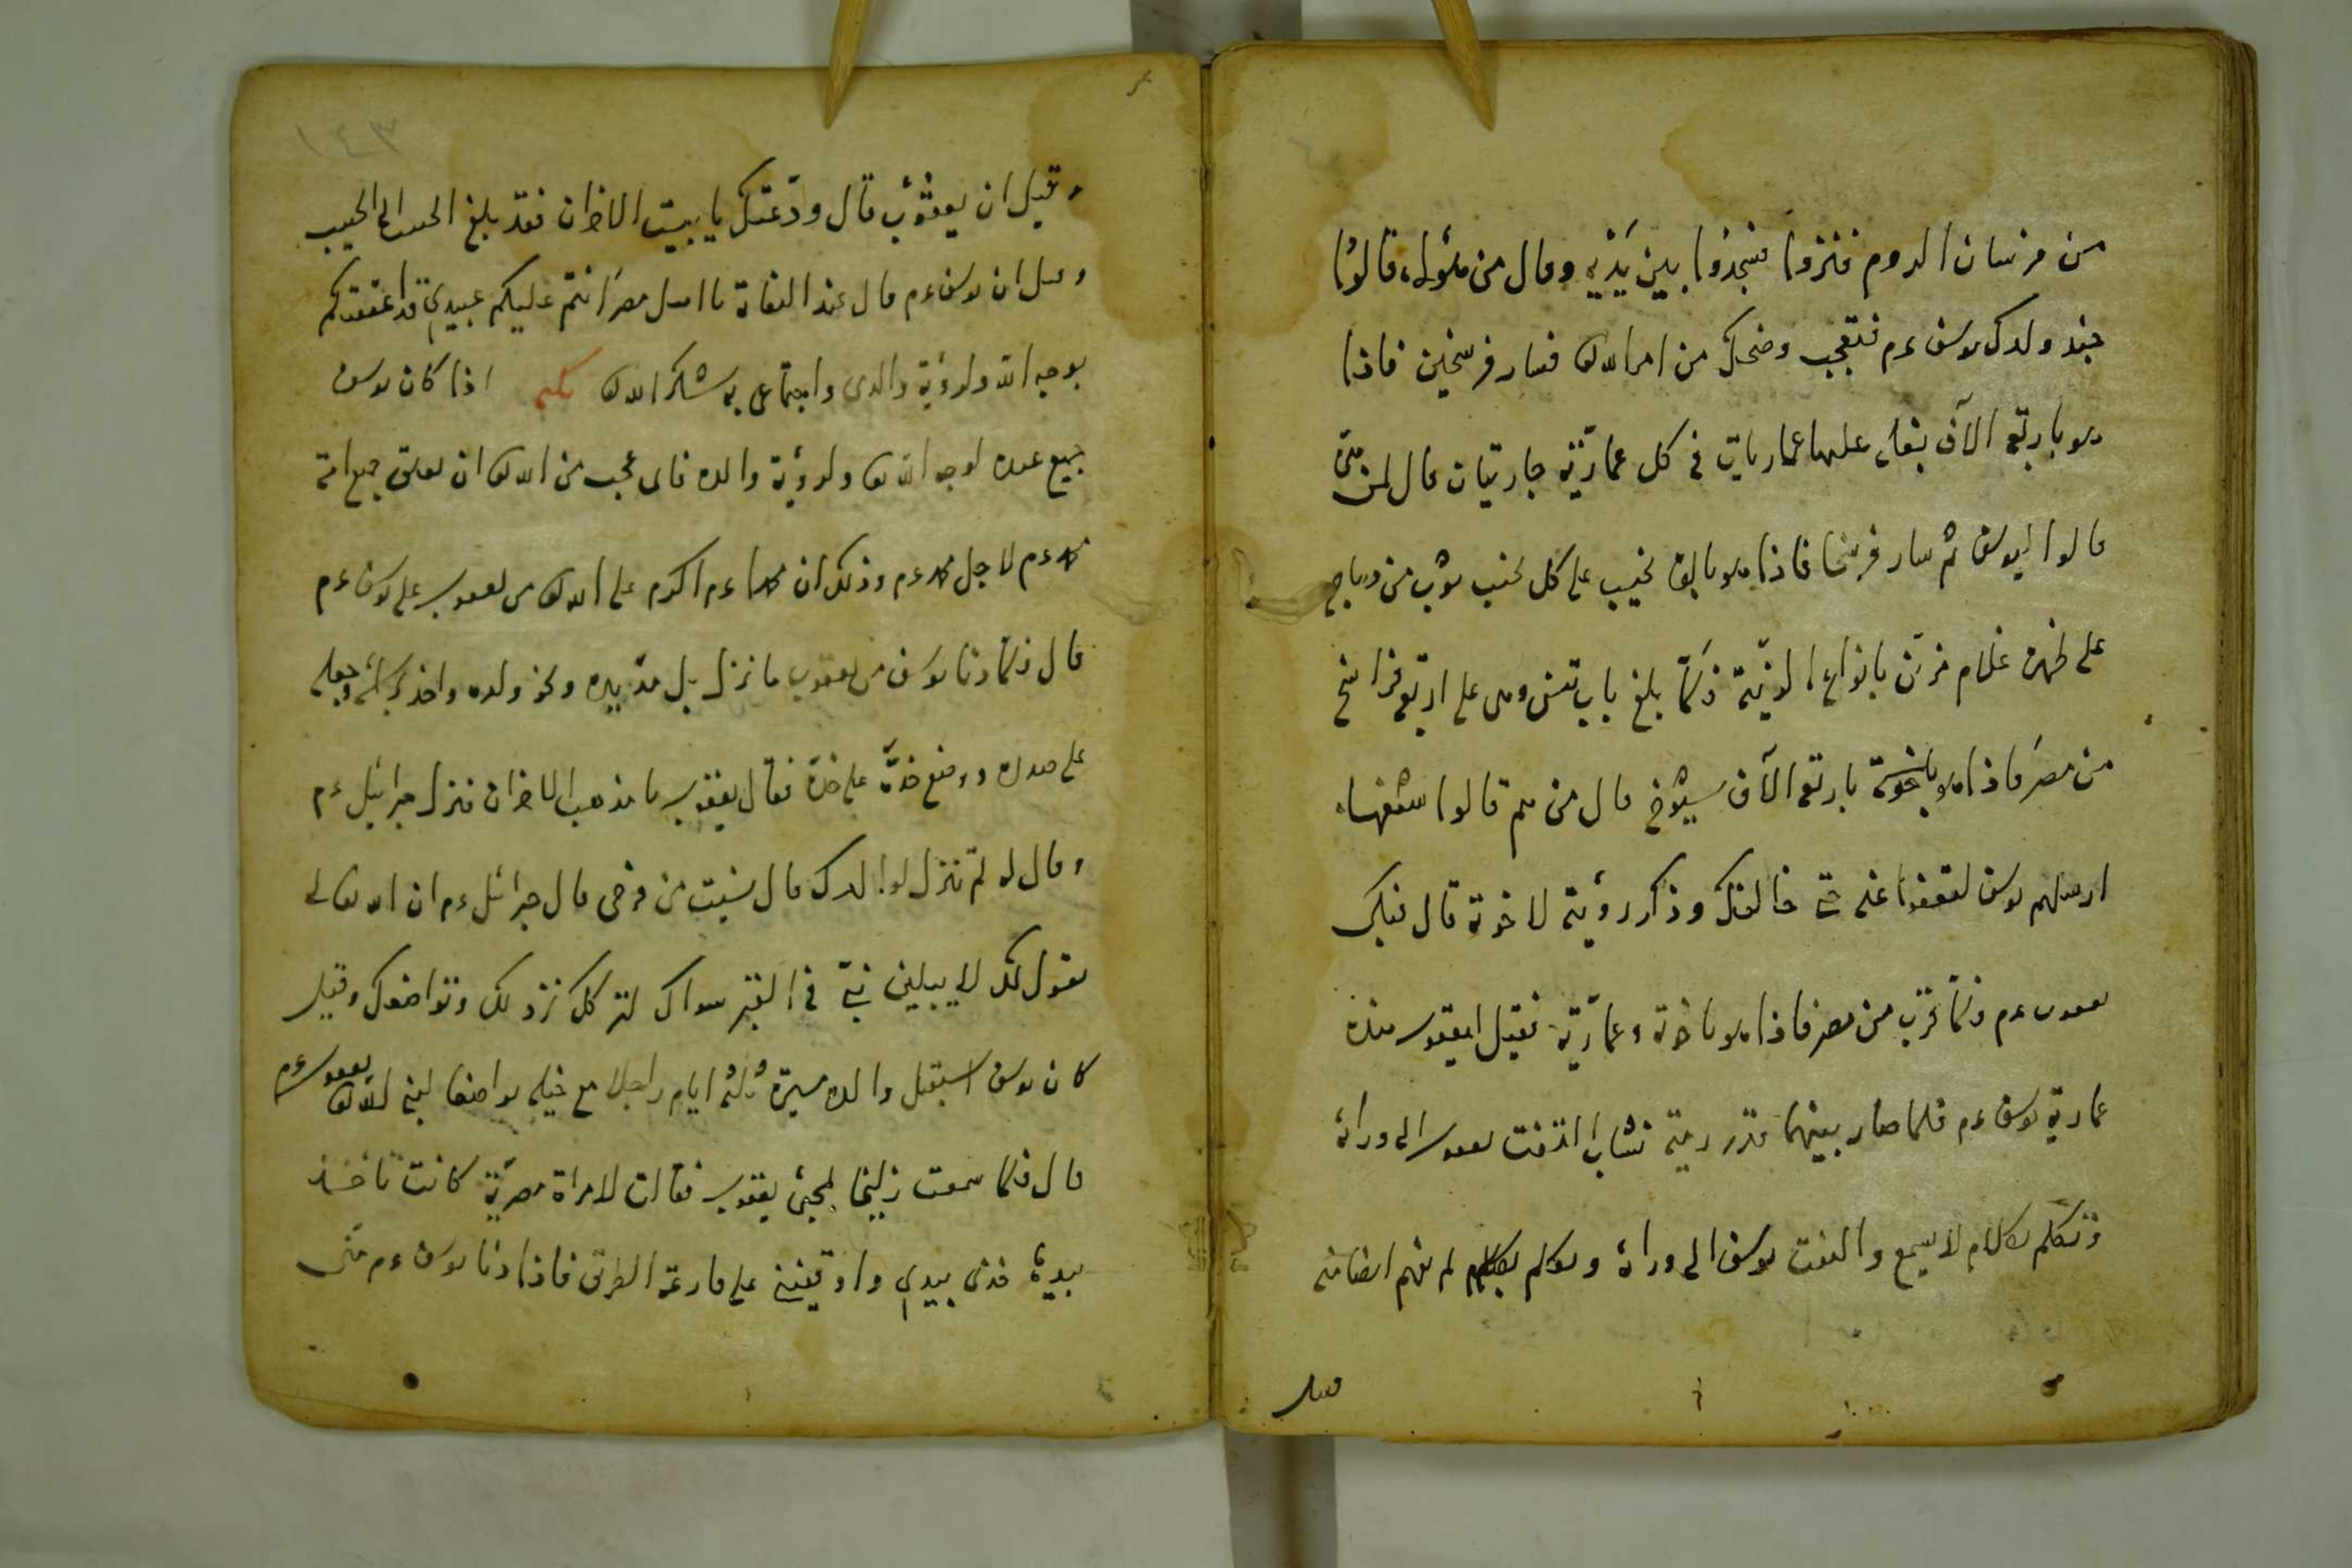 من فرسان الروم فنزلوا فسجدوا بين يديه وقال من هؤلاء قالوا
جند ولدك يوسف ءم فتعجب وضحك من امر الله تعا فسار فرسخين فاذا
هو باربعة الآف بغلة عليها عماريات في كل عمارية جاريتان قال لمن هن
قالوا ليوسف ثم سار فرسخا فاذا هو بالف نجيب على كل نجيب ثوب من ديباج
على ظهره غلام مزين بانواع الزينة فلما بلغ باب تنس وهي على اربعة فراسخ
من مصر فاذا هو باربعة الآف شيوخ قال من هم قالوا شفعاء
ارسلهم يوسف لتعفوا عنه حتى خالفك وذكر رؤيته لاخوته قال فبكى
يعقوب ءم فلما قرب من مصر فاذا هو باخوته وعمارية فقيل ليعقوب هذه
عمارية يوسف ءم فلما صار بينهما قدر رمية نشاب التفت يعقوب الى ورائه
وتكلم بكلام لا يسمع والتفت يوسف الى ورائه وتكلم بكلام لم يفهم ايضا منه
فقيل
١٤٣
وقيل ان يعقوب قال ودعتك يا بيت الاحزان فقد بلغ الحبيب الى الحبيب
وقيل ان يوسف ءم قال عند التقائه يا اهل مصر انتم عليكم عبيدي قد اعتقتكم
لوجه الله ولرؤية والدى واجتماعى به شكرا لله تعا نكتة اذا كان يوسف
جميع عبيده لوجه الله تعا ولرؤية والده فاى عجب من الله تعا ان يعتق جميع امة
محمد ءم لاجل محمد ءم وذلك ان محمدا ءم اكرم على الله تعا من يعقوب على يوسف ءم
قال فلما دنا يوسف من يعقوب ما نزل بل مد يده ونحو ولده واخذ برأسه وجعله
على صدره ووضع خده على خده فقال يعقوب يا مذهب الاحزان فنزل جبرائيل ءم
وقال له لم تنزل لوالدك قال نسيت من فرحى قال جبرائيل ءم ان الله تعالى
يقول لك لا يبلين نبى في القبر سواك لترك نزولك وتواضعك وقيل
كان يوسف استقبل والده مسيرة ثلثة ايام راجلا مع خيله تواضعا لنبى الله تعا يعقوب ءم
قال فلما سمعت زليخا بمجئ يعقوب فقالت لامرأة مصرية كانت تأخذ
بيدها خذى بيدي واوقفينى على قارعة الطريق فاذا دنا يوسف ءم منى